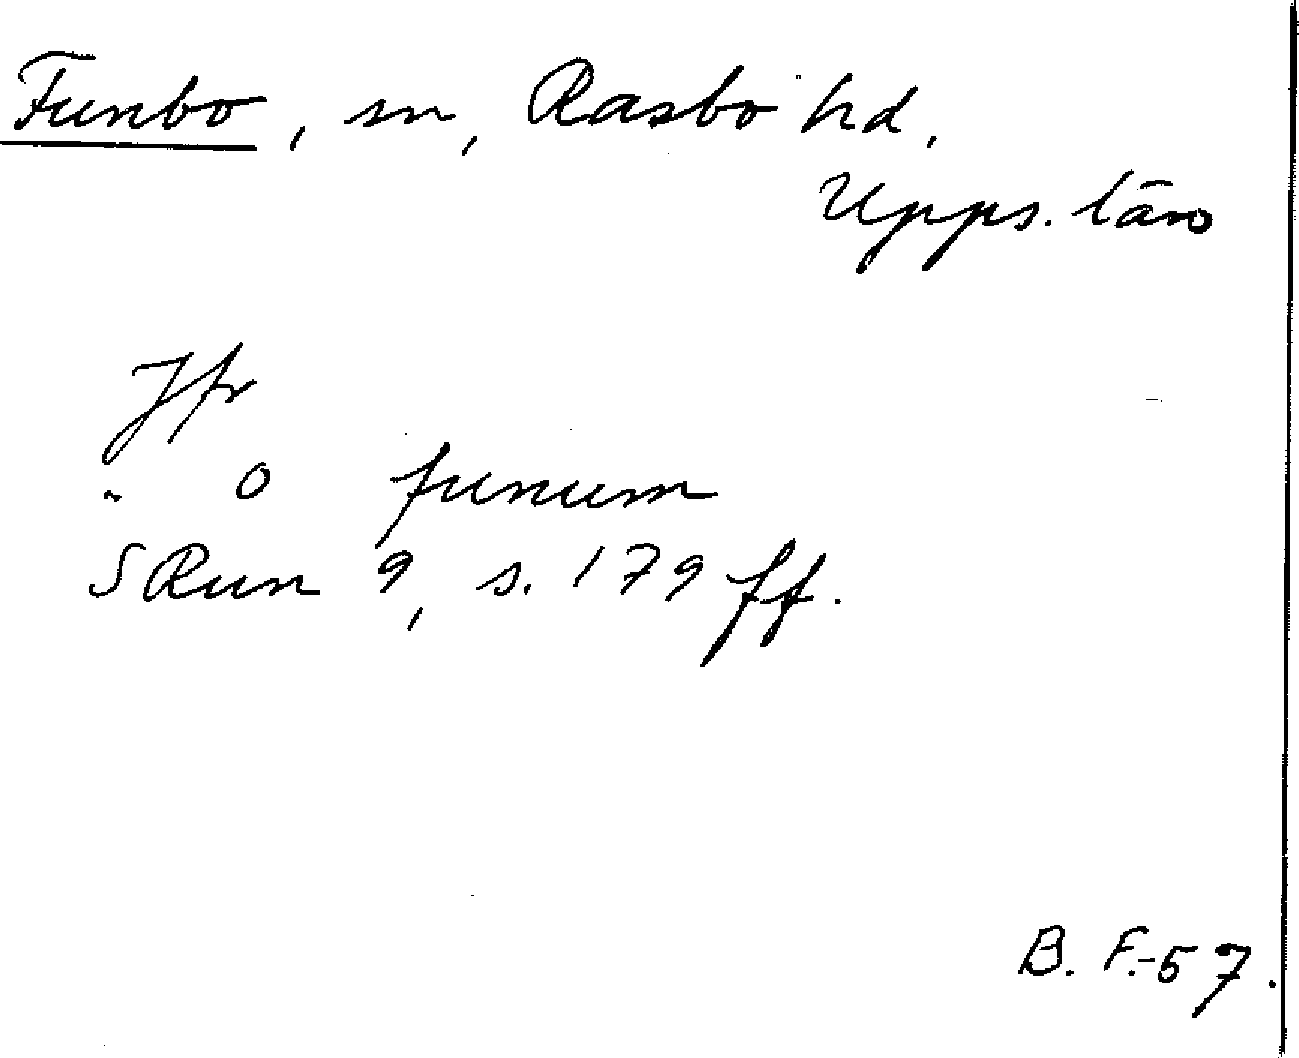 Funbo, sn, Rasbo hd,
Upps. län
Jfr
" o funum
SRun 9, s. 179 ff.
B. F.-57.